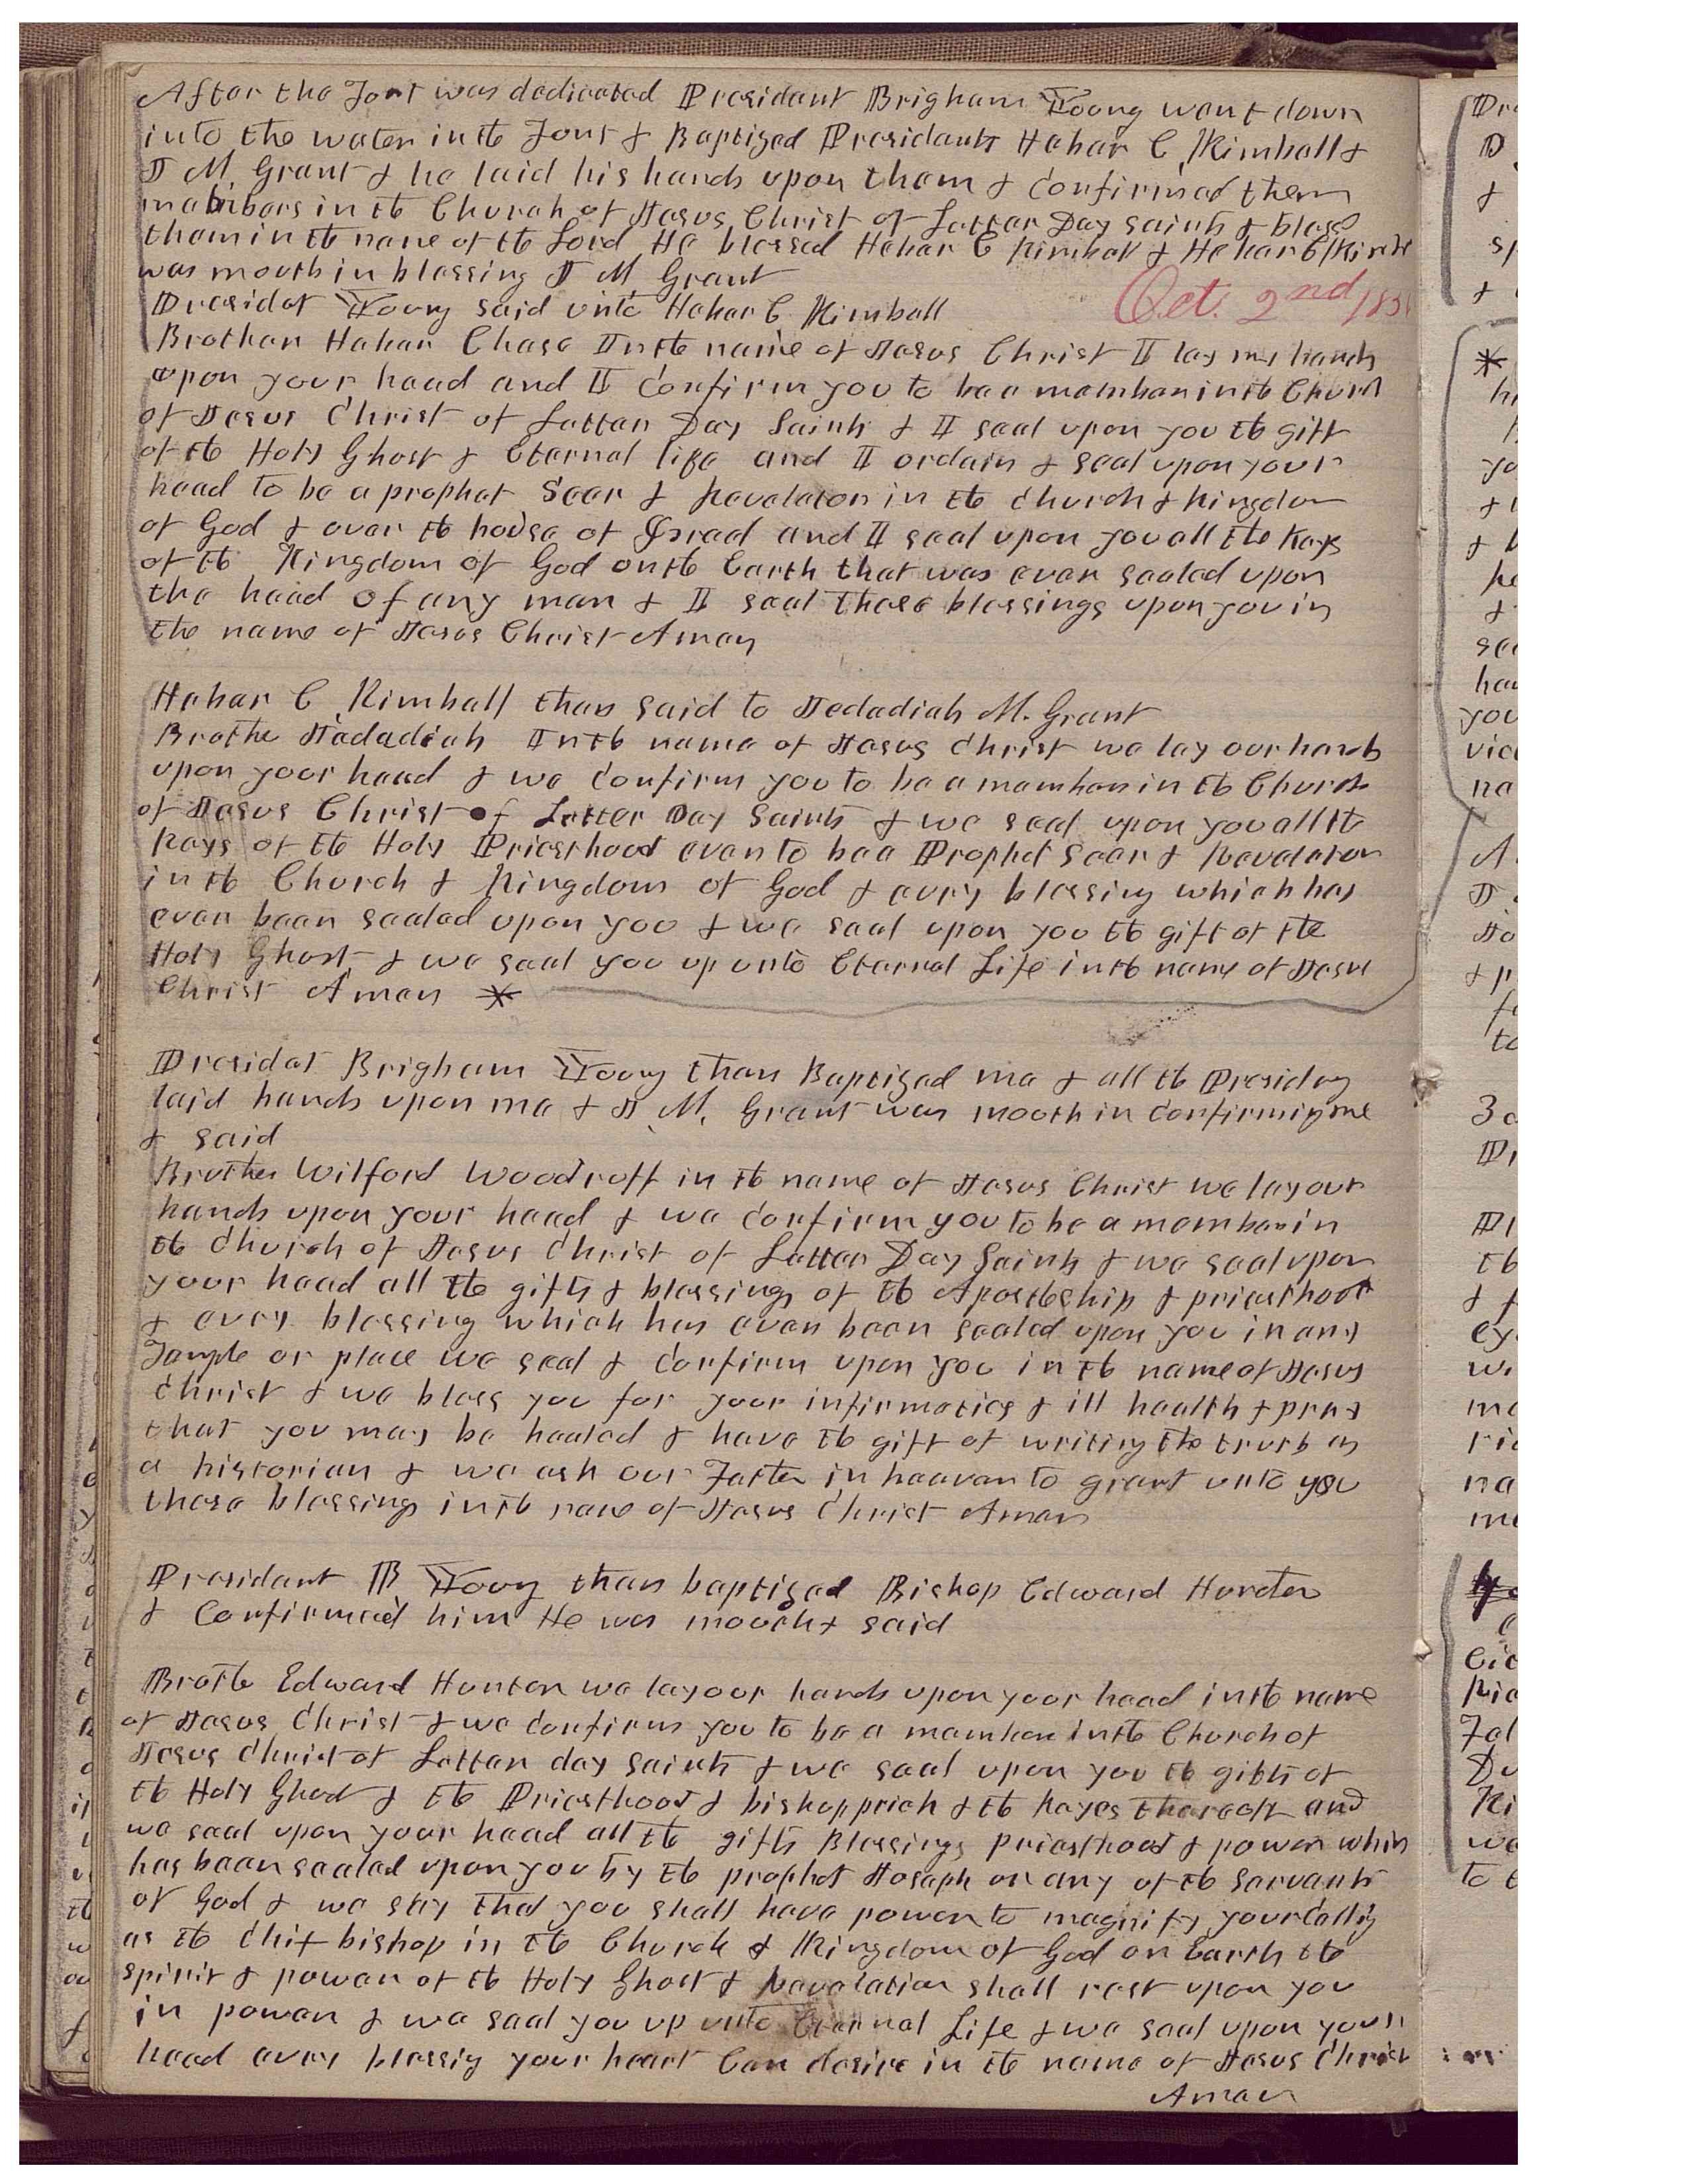 After the Font was dedicated President Brigham Young went down
into the water in the Font & Baptized Presidents Heber C Kimball &
J M. Grant & he laid his hands upon them & Confirmed them
members in the Church of Jesus Christ of Latter Day Saints & bless
them in the name of the Lord He blessed Heber C Kimball & Heber C Kimball
was mouth in blessing J M Grant
Oct. 2nd, 185
Presidet Young said unto Heber C. Kimball
Brother Heber Chase In the name of Jesus Christ I lay my hands
upon your head and I Confirm you to be a member in the Church
of Jesus Christ of Latter Day Saints & I seal upon you the gift
of the Holy Ghost & Eternal life and I ordain & seal upon your
head to be a prophet Seer & Revelator in the Church & Kingdom
of God & over the house of Israel and I seal upon you all the Keys
of the Kingdom of God on the Earth that was ever sealed upon
the head of any man & I seal these blessings upon you in
the name of Jesus Christ Amen
Heber C. Kimball then said to Jedadiah M. Grant
Brothe Jedadiah In the name of Jesus Christ we lay our hands
upon your head & we Confirm you to be a member in the Church
of Jesus Christ of Latter Day Saints & we seal upon you all the
Keys of the Holy Priesthood even to be a Prophet Seer & Revelator
in the Church & Kingdom of God & every blessing which has
ever been sealed upon you & we seal upon you the gift of the
Holy Ghost & we seal you up unto Eternal Life in the name of Jesus
Christ Amen *
Presidet Brigham Young then Baptized me & all the Presidey
laid hands upon me & J. M. Grant was mouth in Confirming me
& said
Brother Wilford Woodruff in the name of Jesus Christ we lay our
hands upon your head & we Confirm you to be a member in
the Church of Jesus Christ of Latter Day Saints & we seal upon
your head all the gifts & blessings of the Apostleship & priesthood
& every blessing which has ever been sealed upon you in any
Temple or place we seal & Confirm upon you in the name of Jesus
Christ & we bless you for your infirmeties & ill health & pray
that you may be healed & have the gift of writing the truth as
a historian & we ask our Father in heaven to grant unto you
these blessings in the name of Jesus Christ Amen
President B Young then baptized Bishop Edward Hunter
& Confirmed him He was mouth & said
Brothe Edward Hunter we lay our hands upon your head in the name
of Jesus Christ & we Confirm you to be a member in the Church of
Jesus Christ of Latter day Saints & we seal upon you the gifts of
the Holy Ghost & the Priesthood & bishopprick & the kayes thereoff and
we seal upon your head all the gifts Blessings Priesthood & power which
has been sealed upon you by the prophet Joseph or any of the Servants
of God & we say that you shall have power to magnify your Callig
as the Chif bishop in the Church & Kingdom of God on Earth the
spirit & power of the Holy Ghost & Revelation shall rest upon you
in power & we seal you up unto Eternal Life & we seal upon your
head every blessig your heart Can desire in the name of Jesus Christ
Amen